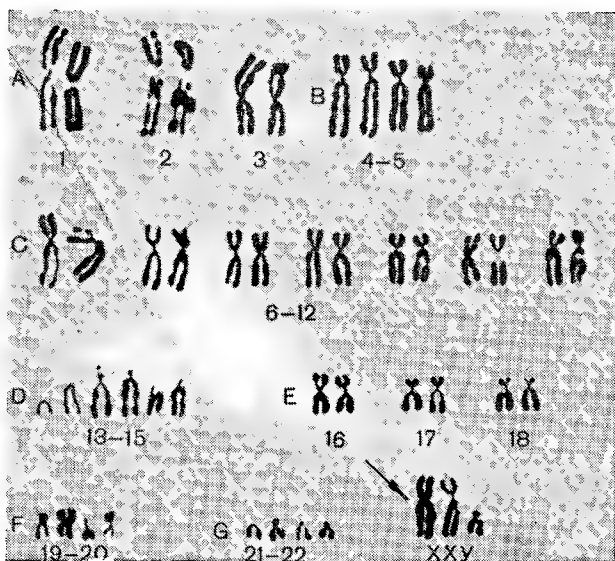 A B
1 2 3 4-5
C
6-12
D E
13-15 16 17 18
F G
19-20 21-22 XXY